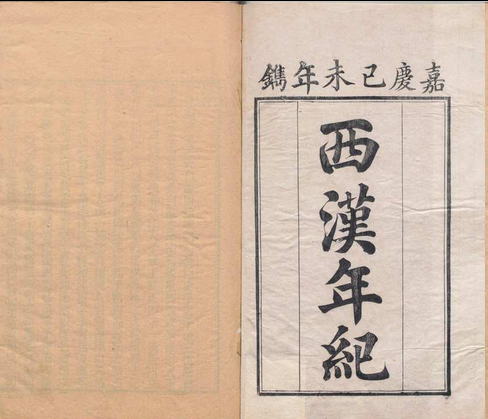 嘉慶己未年鐫
西漢年紀